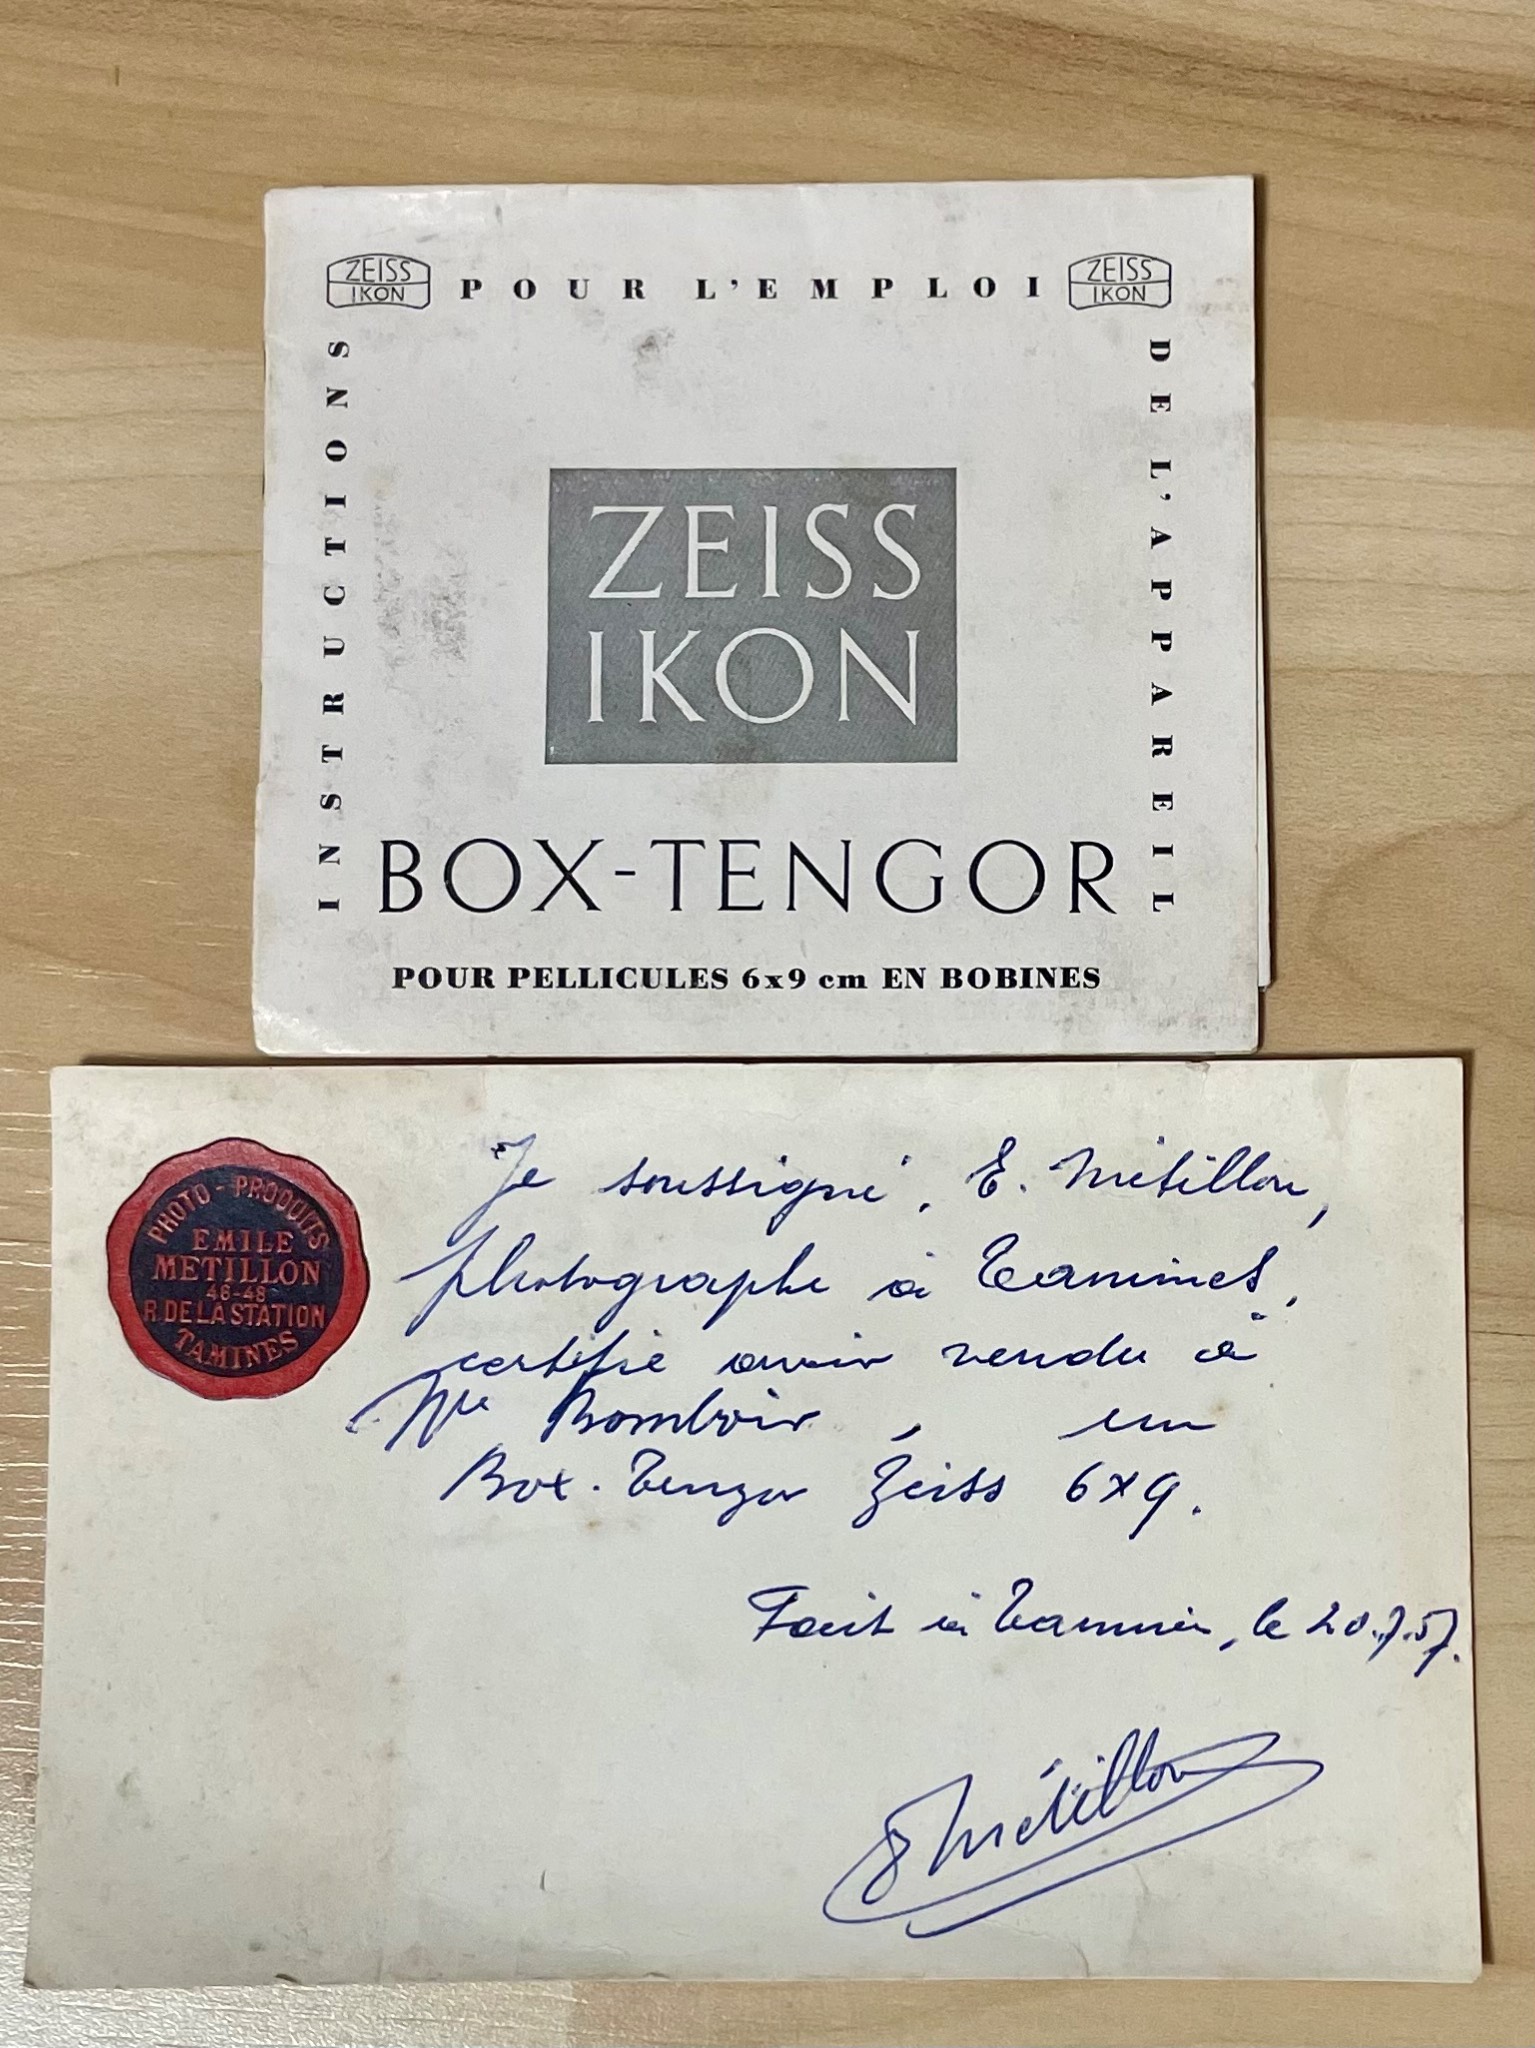 ZEISS IKON
POUR L'EMPLOI
ZEISS IKON
INSTRUCTIONS
DE L'APPAREIL
ZEISS
IKON
BOX-TENGOR
POUR PELLICULES 6x9 cm EN BOBINES
PHOTO-PRODUITS
EMILE
METILLON
46-48
R. DE LA STATION
TAMINES
Je soussigné, E. Métillon,
photographe à Tamines,
certifie avoir vendu à
Mle Bomboir, un
Box-Tengor Zeiss 6x9.
Fait à Tamines, le 20.7.57.
E Métillon